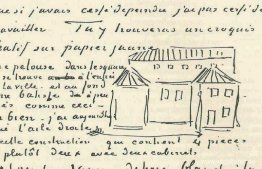 si j'avais cessé depeindre j'ai pas cessé de
travailler. Tu y trouveras un croquis
hatif sur papier jaune
une pelouse dans le square
se trouve à l'entrée
la ville. et au fond
une batisse à peu
près comme ceci-
bien - j'ai aujourd'hui
l'aile droite de
cette construction qui contient 4 pièces
plutôt deux avec deux cabinets